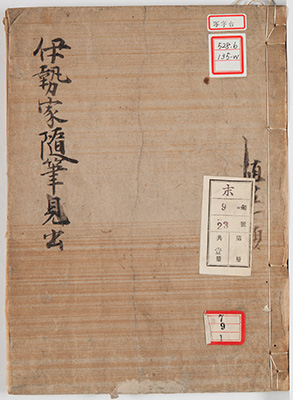 伊勢家随筆見出
写字台
528.6
135-W
9
23
7
9
1